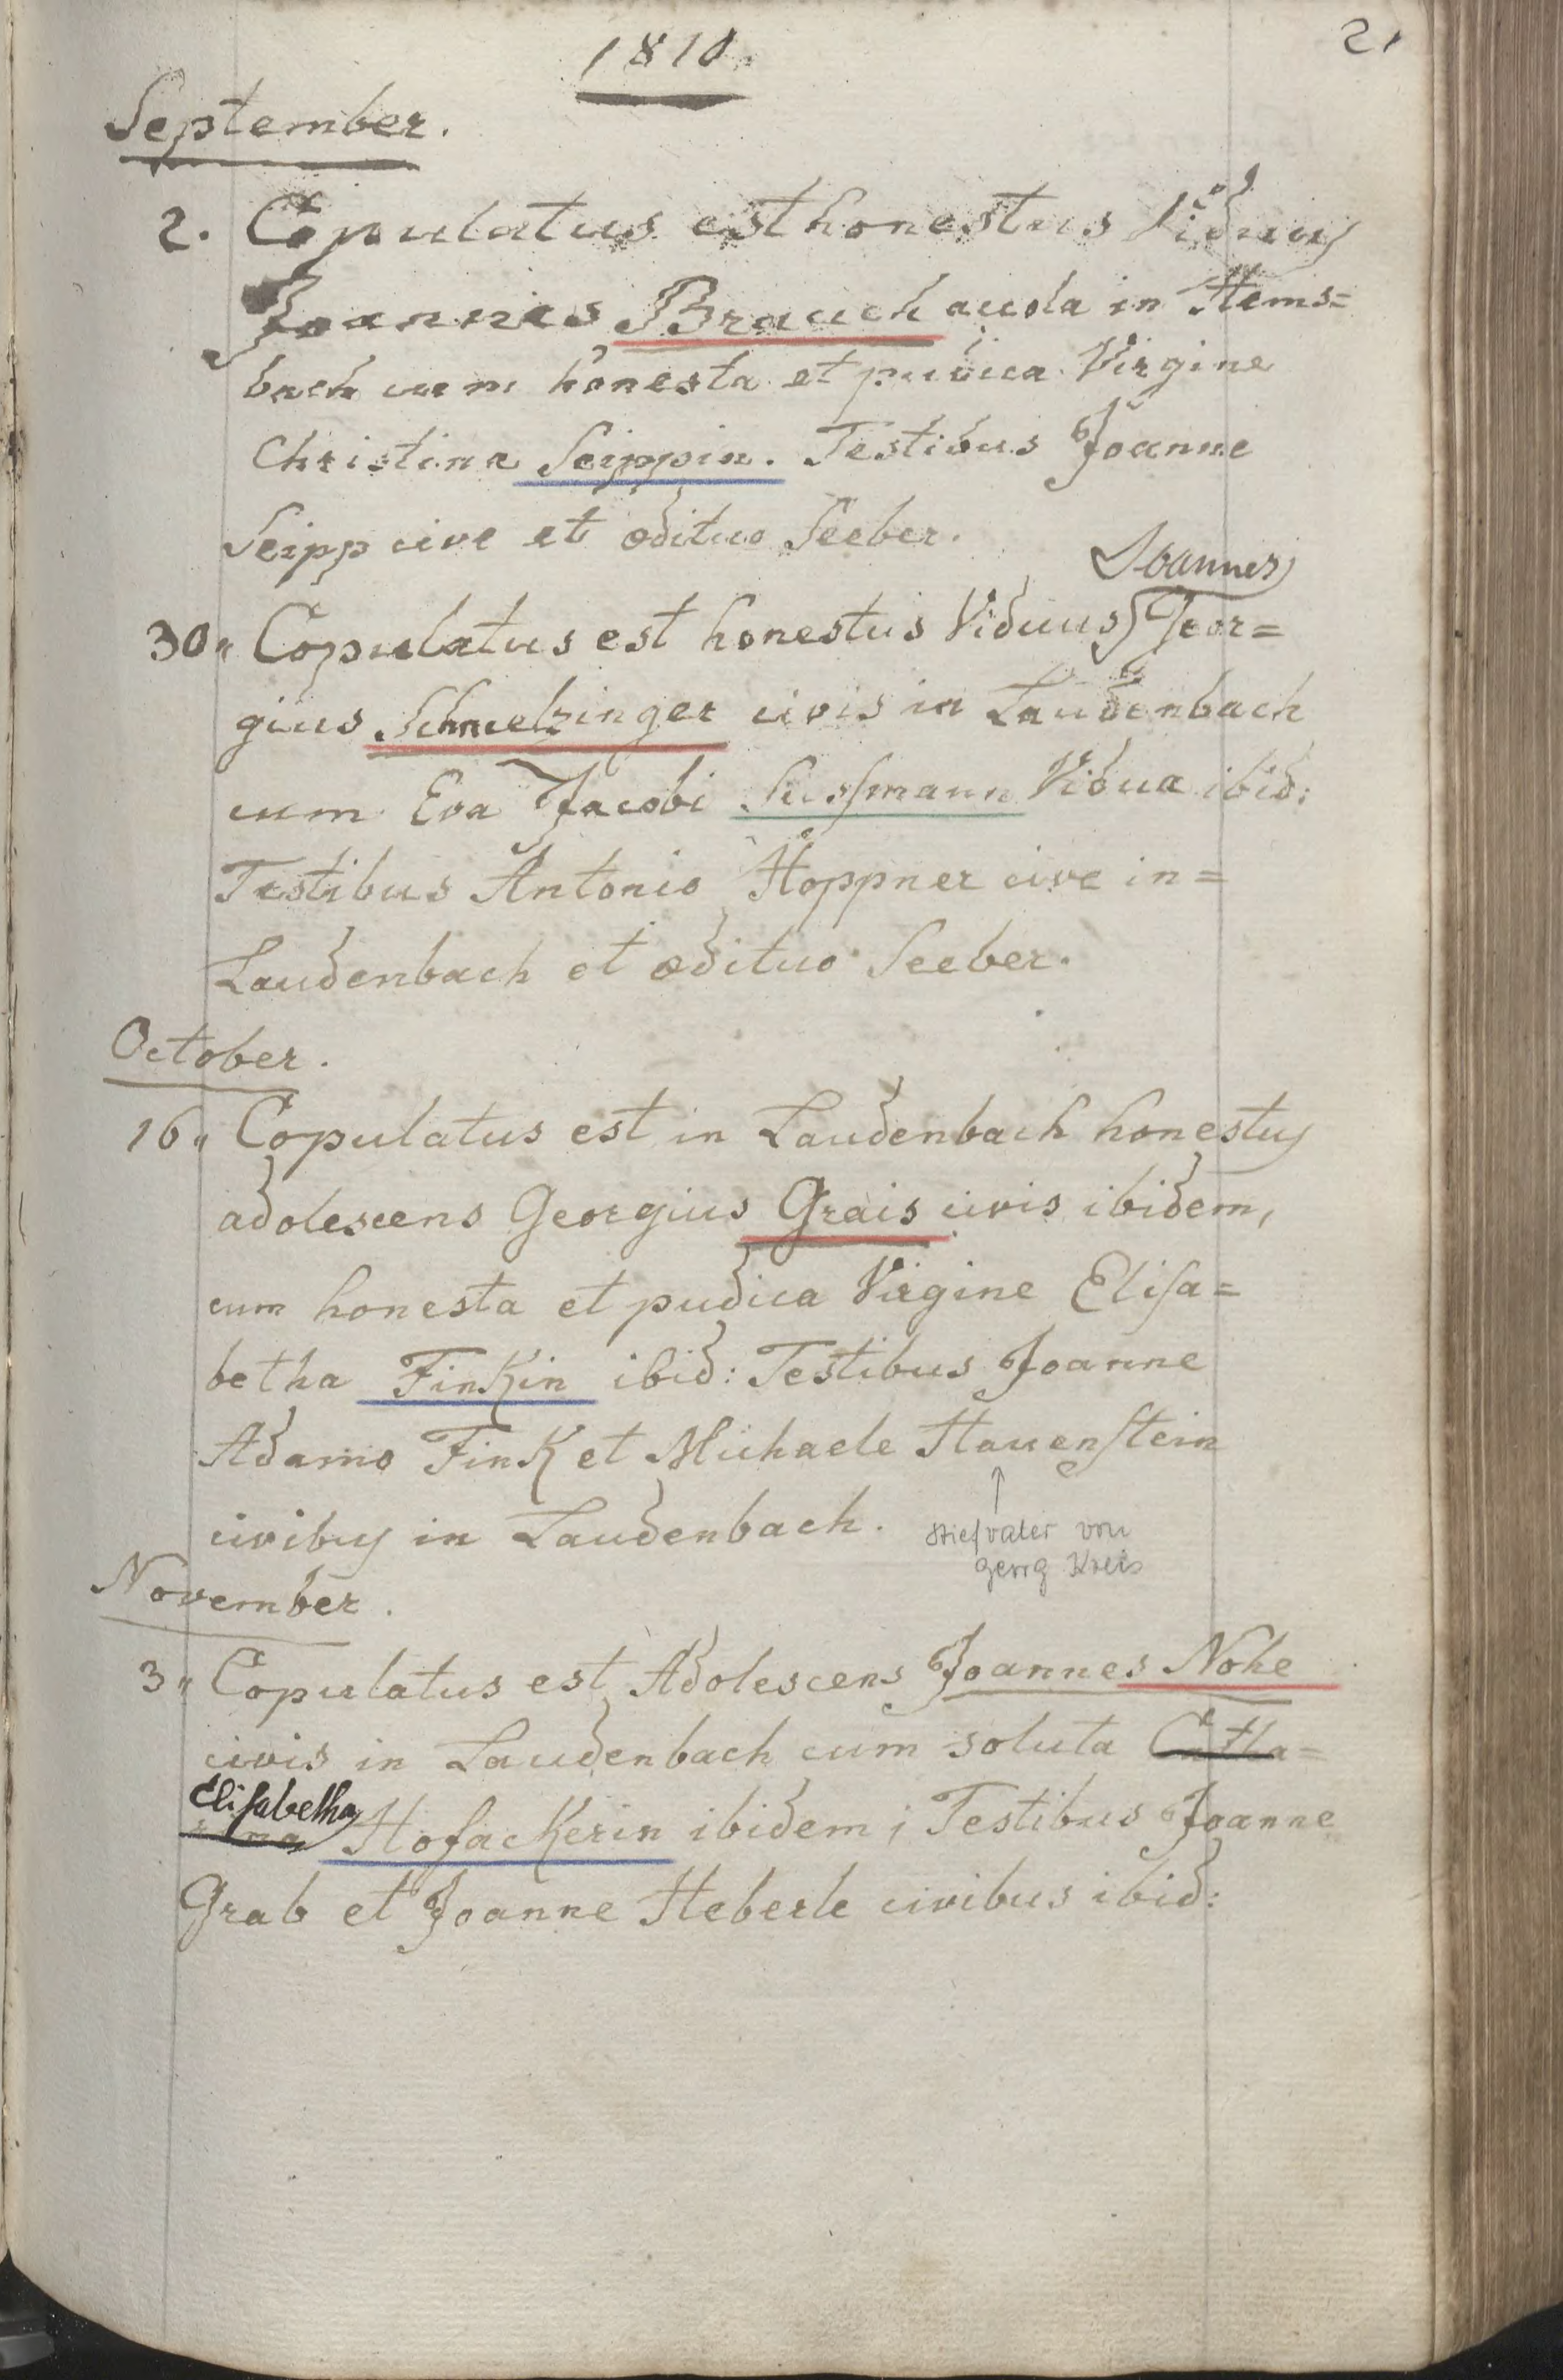 1810.
21
September.
2. Copulatus est honestus Viduus
Joannes Brauch accola in Hems=
bach cum honesta et pudica Virgine
Christina Seippin. Testibus Joanne
Seipp cive et ædituo Seeber.
Joannes
30" Copulatus est honestus Viduus Geor=
gius Schmelzinger civis in Laudenbach
cum Eva Jacobi Sussmann Vidua ibid:
Testibus Antonio Hoppner cive in=
Laudenbach et ædituo Seeber.
October.
16" Copulatus est in Laudenbach honestus
adolescens Georgius Grais civis ibidem,
cum honesta et pudica Virgine Elisa=
betha Finkin ibid: Testibus Joanne
Adamo Fink et Michaele Hauenstein
civibus in Laudenbach.
↑
Stiefvater von
Georg Kreis
November.
3" Copulatus est Adolescens Joannes Nohe
civis in Laudenbach cum soluta Catha=
Elisabetha
rina Hofackerin ibidem; Testibus Joanne
Grab et Joanne Heberle civibus ibid: